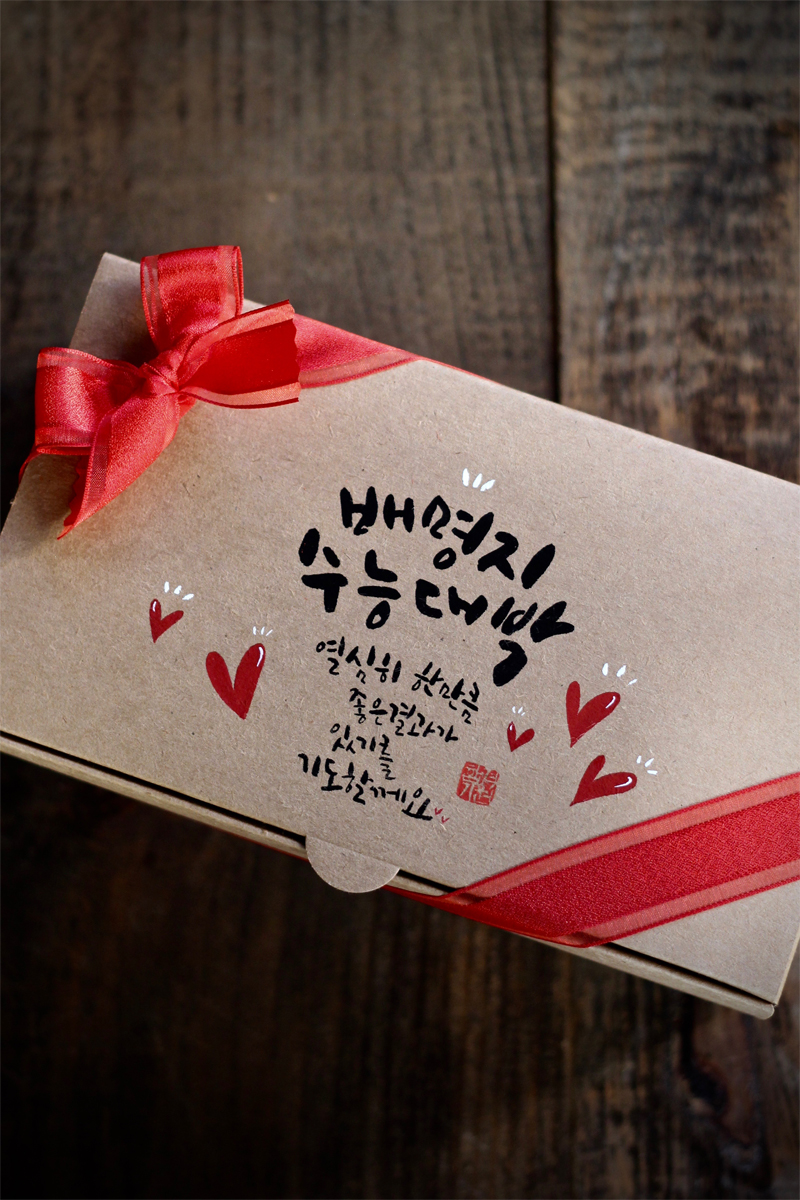 배명지
수능대박
열심히 한만큼
좋은결과가
있기를
기도할께요